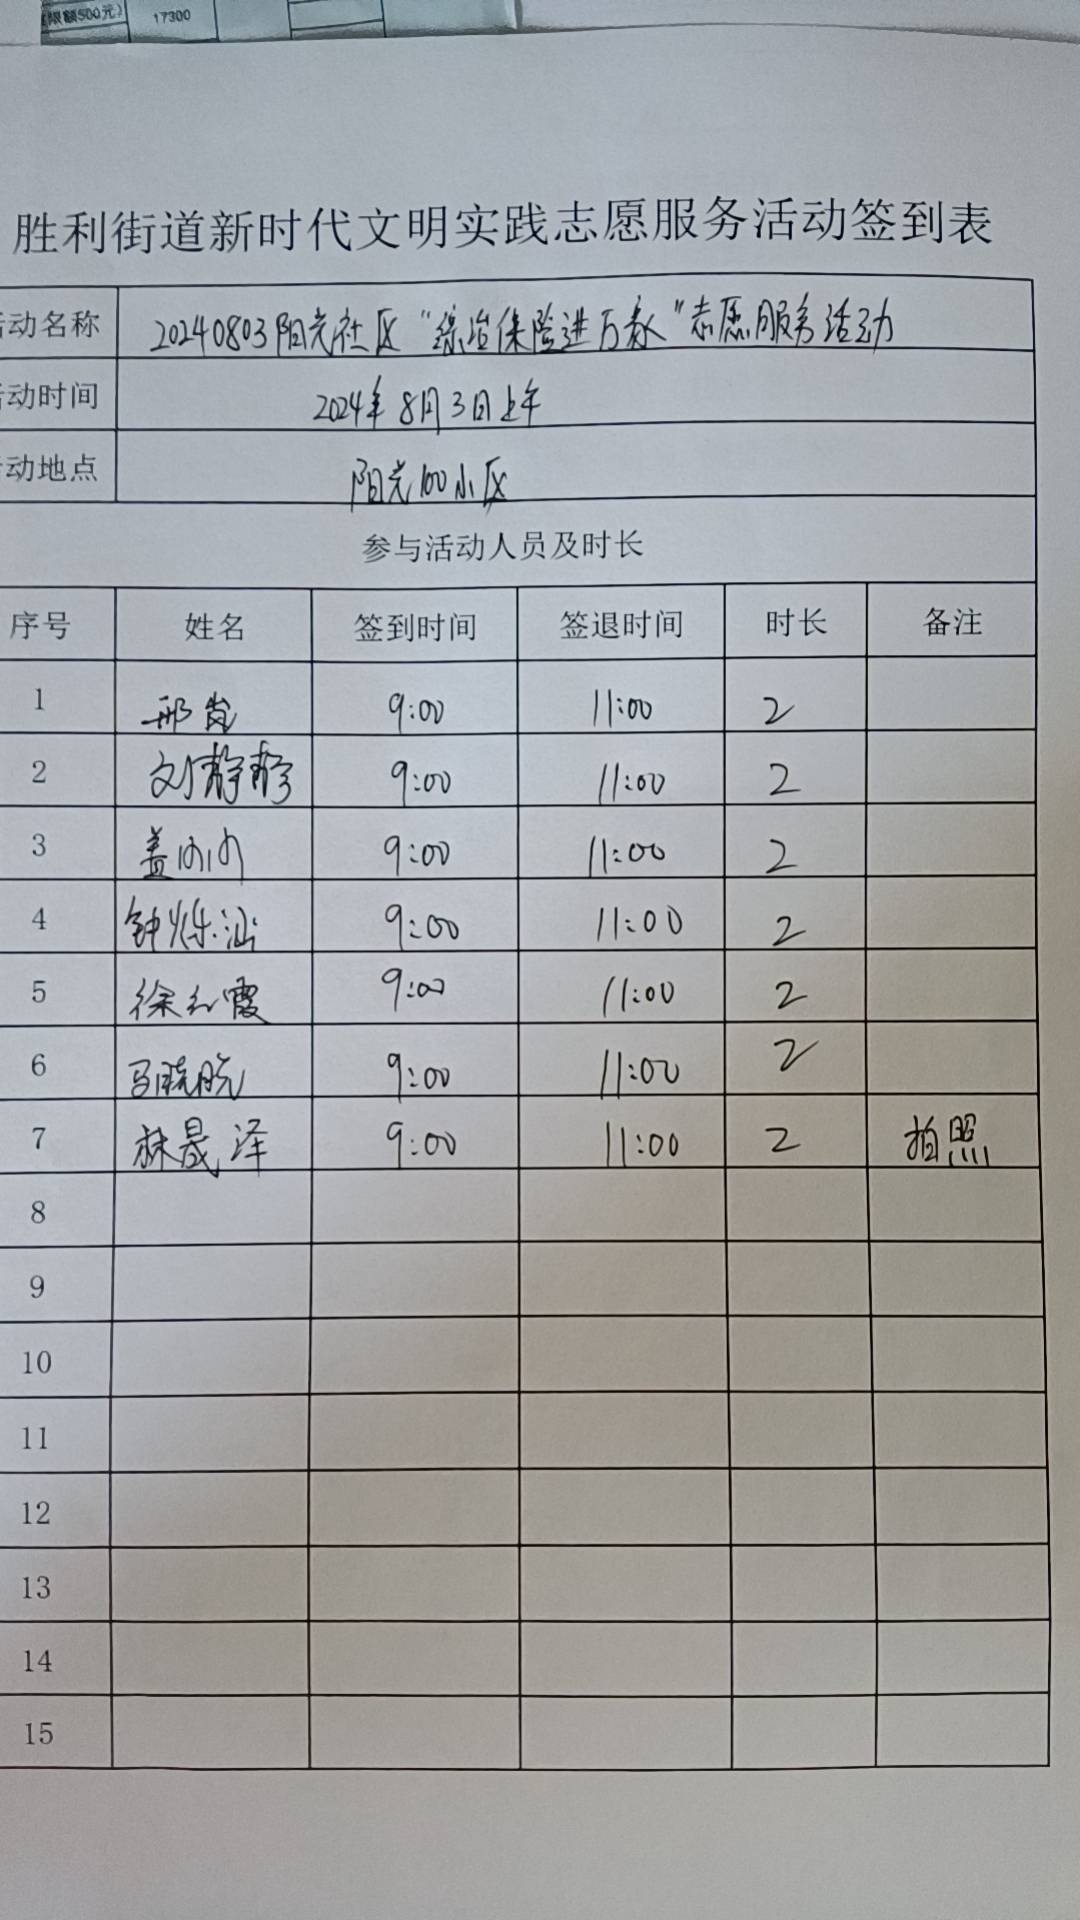 限额500元)
17300
胜利街道新时代文明实践志愿服务活动签到表
活动名称 20240803阳光社区“综治保险进万家”志愿服务活动
活动时间 2024年8月3日上午
活动地点 阳光100小区
参与活动人员及时长
序号 姓名 签到时间 签退时间 时长 备注
1 9:00 11:00 2
2 刘静静 9:00 11:00 2
3 盖 9:00 11:00 2
4 钟烁汕 9:00 11:00 2
5 徐红霞 9:00 11:00 2
6 马晓皖 9:00 11:00 2
7 林晟泽 9:00 11:00 2 拍照
8
9
10
11
12
13
14
15